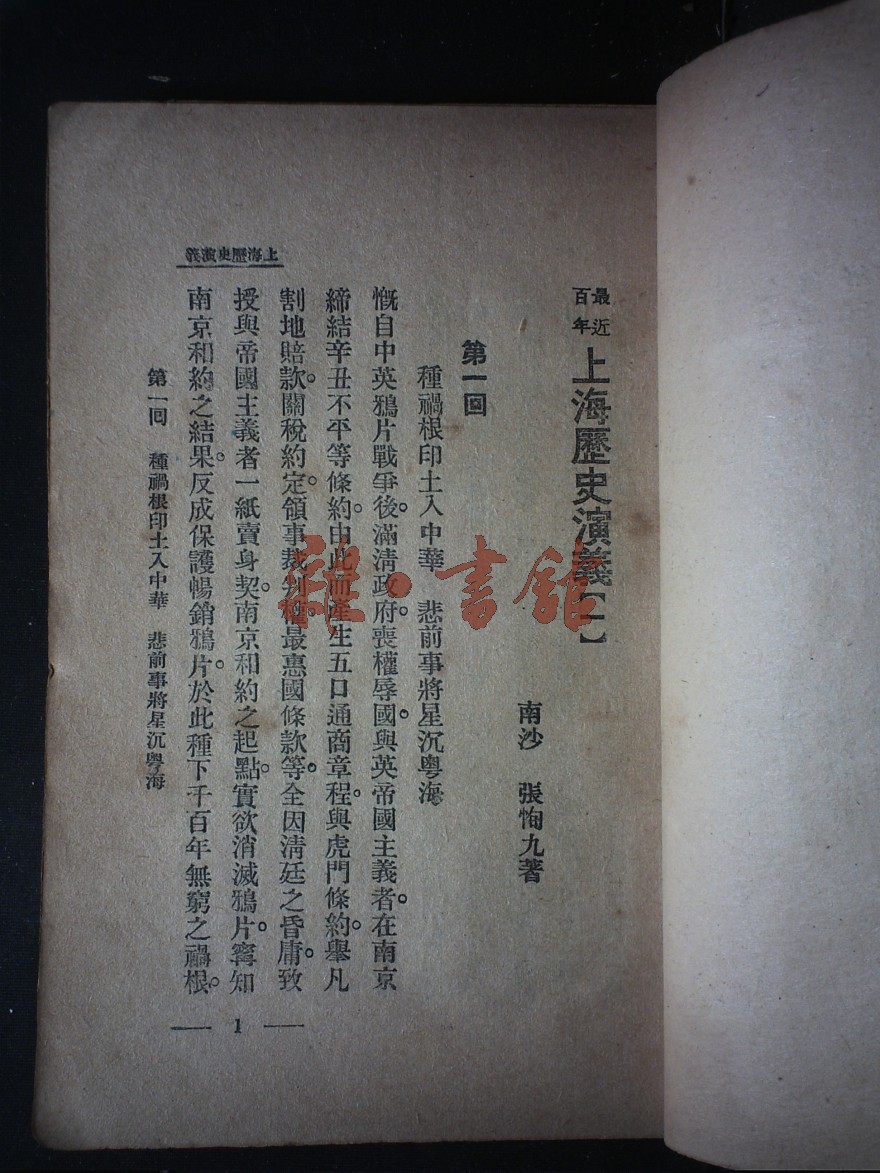 最近
百年
上海歷史演義【一】
南沙　張恂九著
第一回
種禍根印土入中華　悲前事將星沉粵海
慨自中英鴉片戰爭後。滿淸政府。喪權辱國。與英帝國主義者。在南京
締結辛丑不平等條約。由此而產生五口通商章程。與虎門條約。舉凡
割地賠款。關稅約定。領事裁判權。最惠國條款等。全因淸廷之昏庸。致
授與帝國主義者一紙賣身契。南京和約之起點。實欲消滅鴉片。寗知
南京和約之結果。反成保護暢銷鴉片。於此種下千百年無窮之禍根。
上海歷史演義
第一回　種禍根印土入中華　悲前事將星沉粵海
1
雜·書館